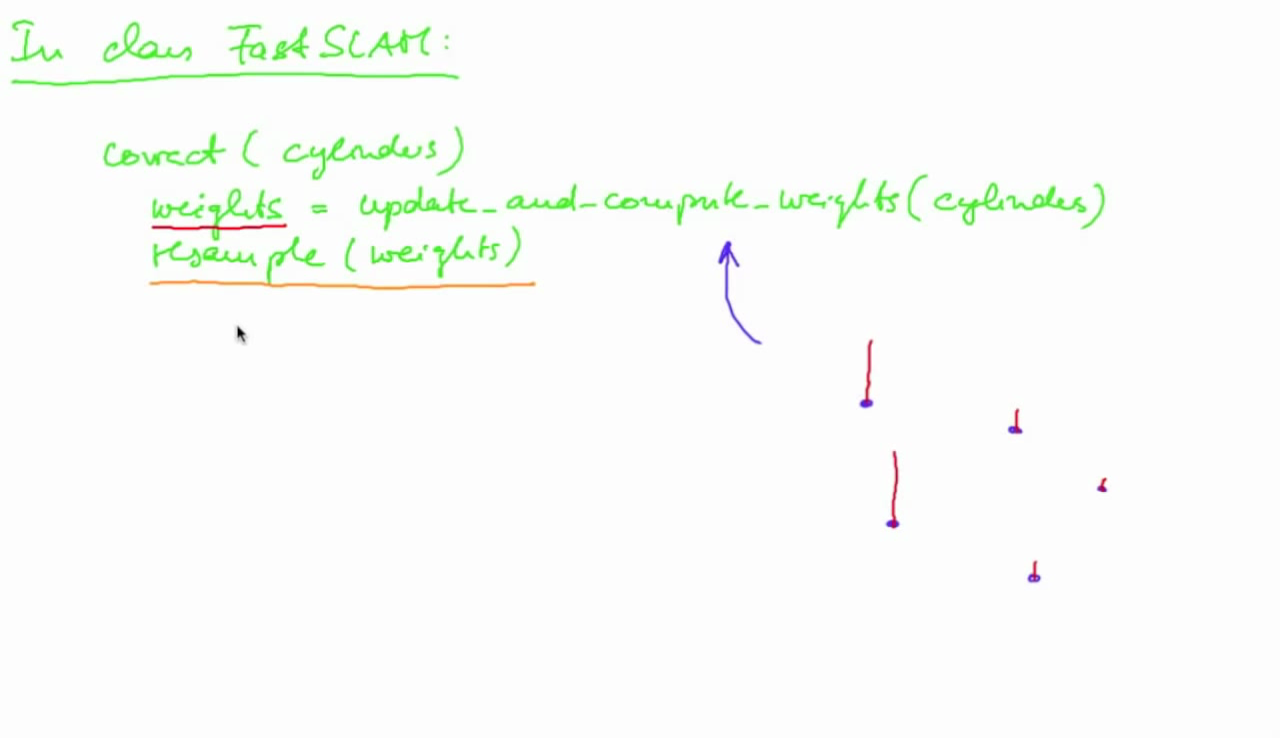 In class FastSLAM:
correct ( cylinders )
weights = update_and_compute_weights( cylinders )
resample ( weights )